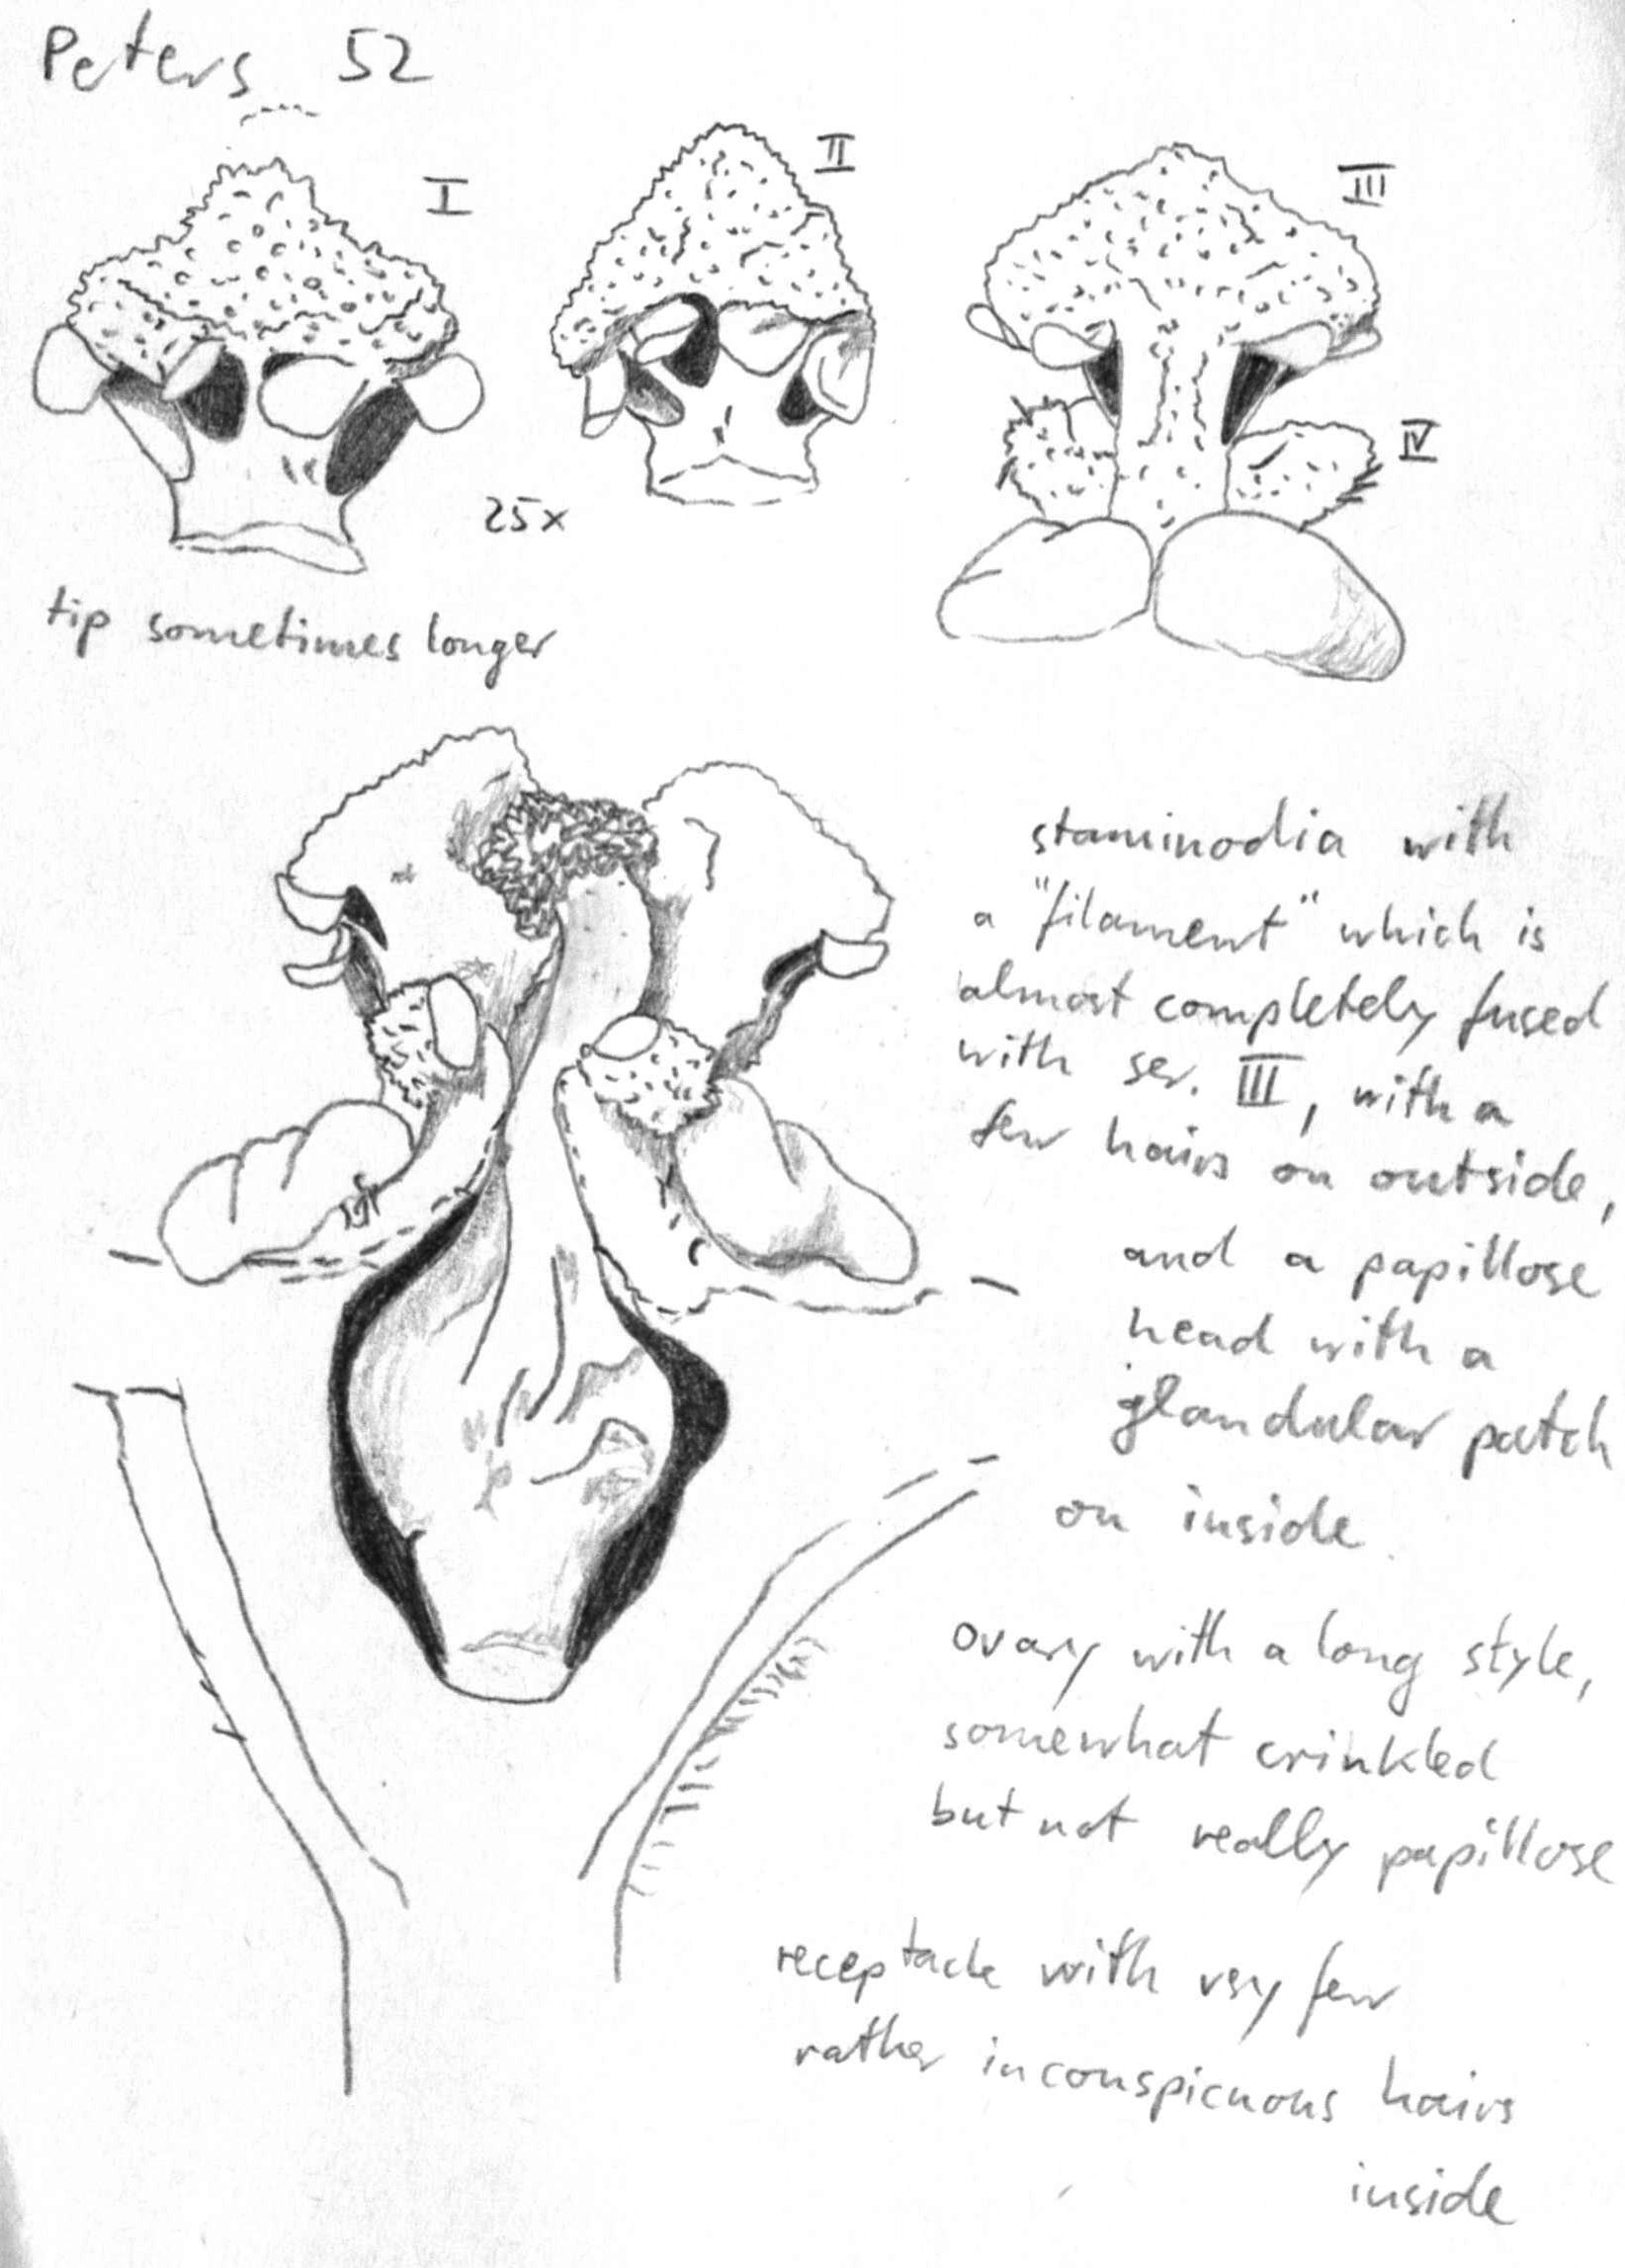 Peters 52
I
II
III
IV
25x
tip sometimes longer
staminodia with
a "filament" which is
almost completely fused
with ser. III, with a
few hairs on outside,
and a papillose
head with a
glandular patch
on inside.
ovary with a long style,
somewhat crinkled
but not really papillose
receptacle with very few
rather inconspicuous hairs
inside